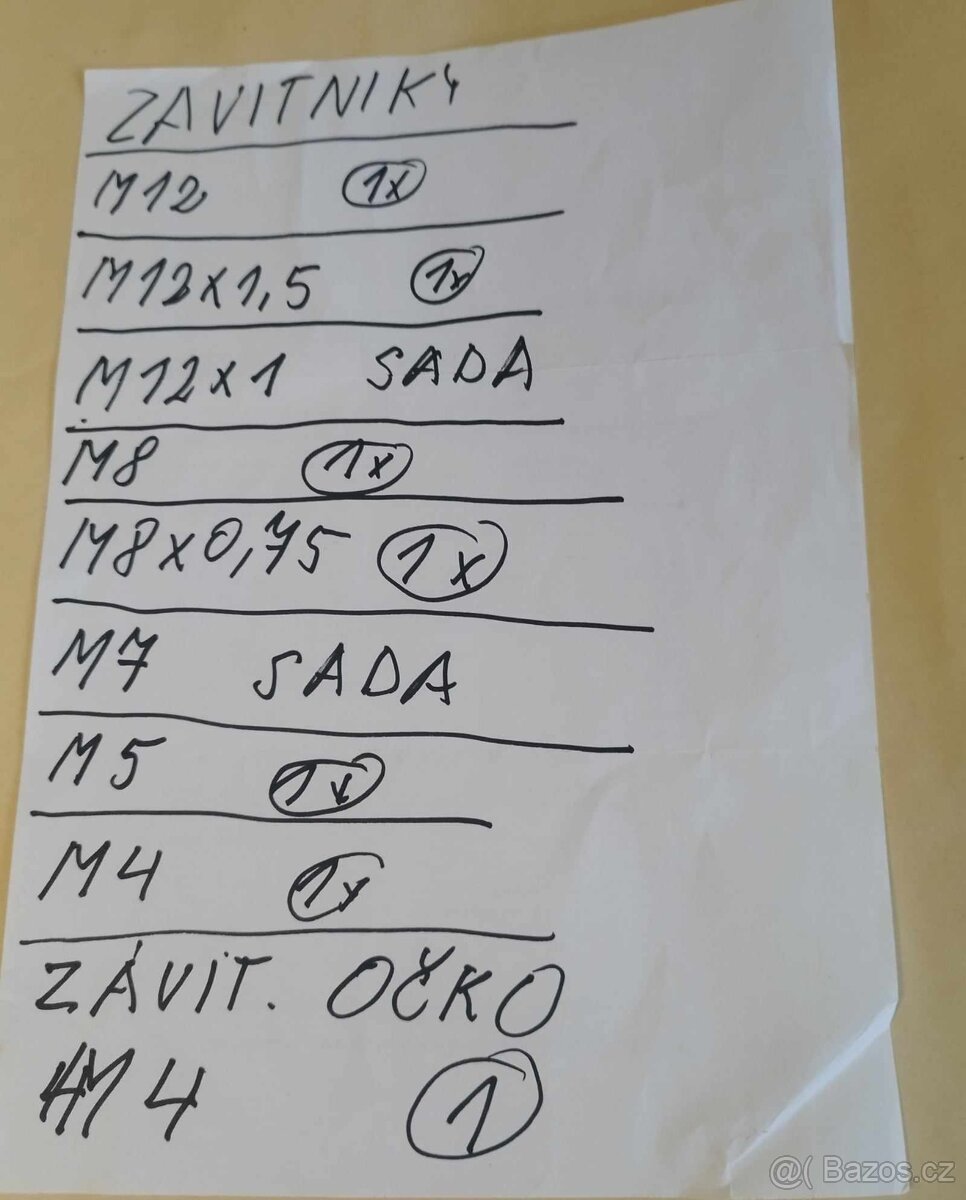 ZAVITNIKY
M12 1x
M12x1,5 1x
M12x1 SADA
M8 1x
M8x0,75 1x
M7 SADA
M5 1x
M4 1x
ZÁVIT. OČKO
M4 1
@( Bazos.cz